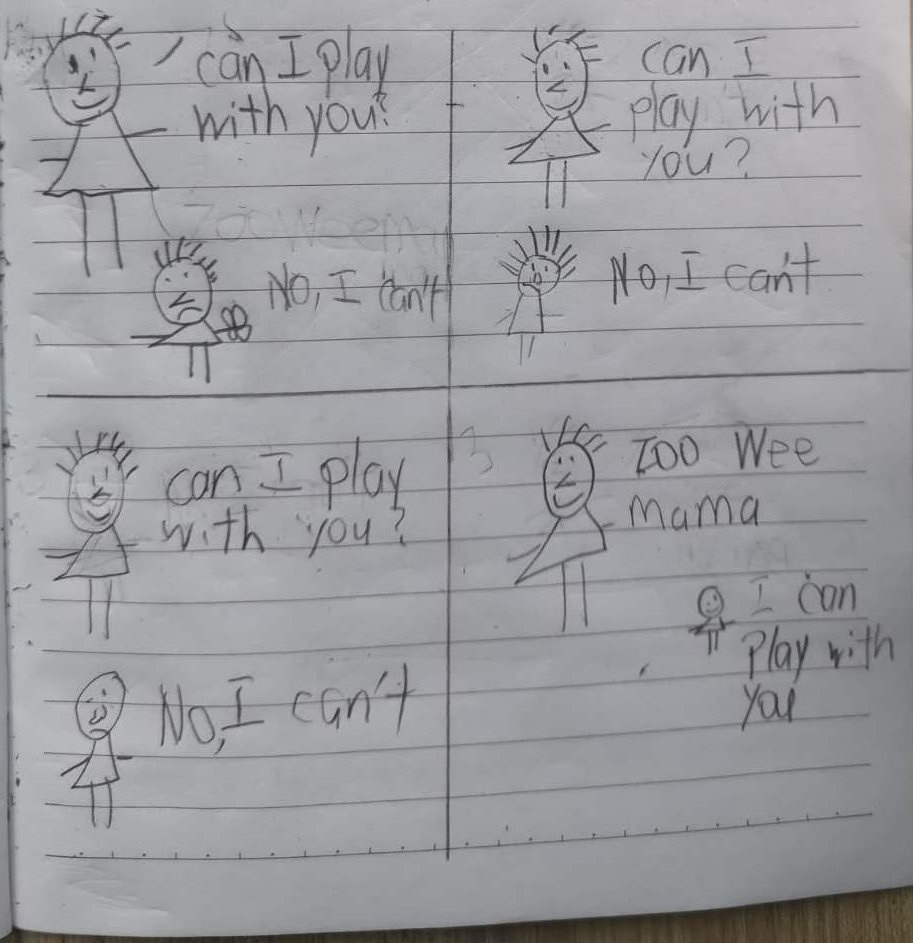 can I play
with you?
No, I can't
can I
play with
you?
No, I can't
can I play
with you?
No, I can't
Zoo Wee
mama
I can
Play with
you